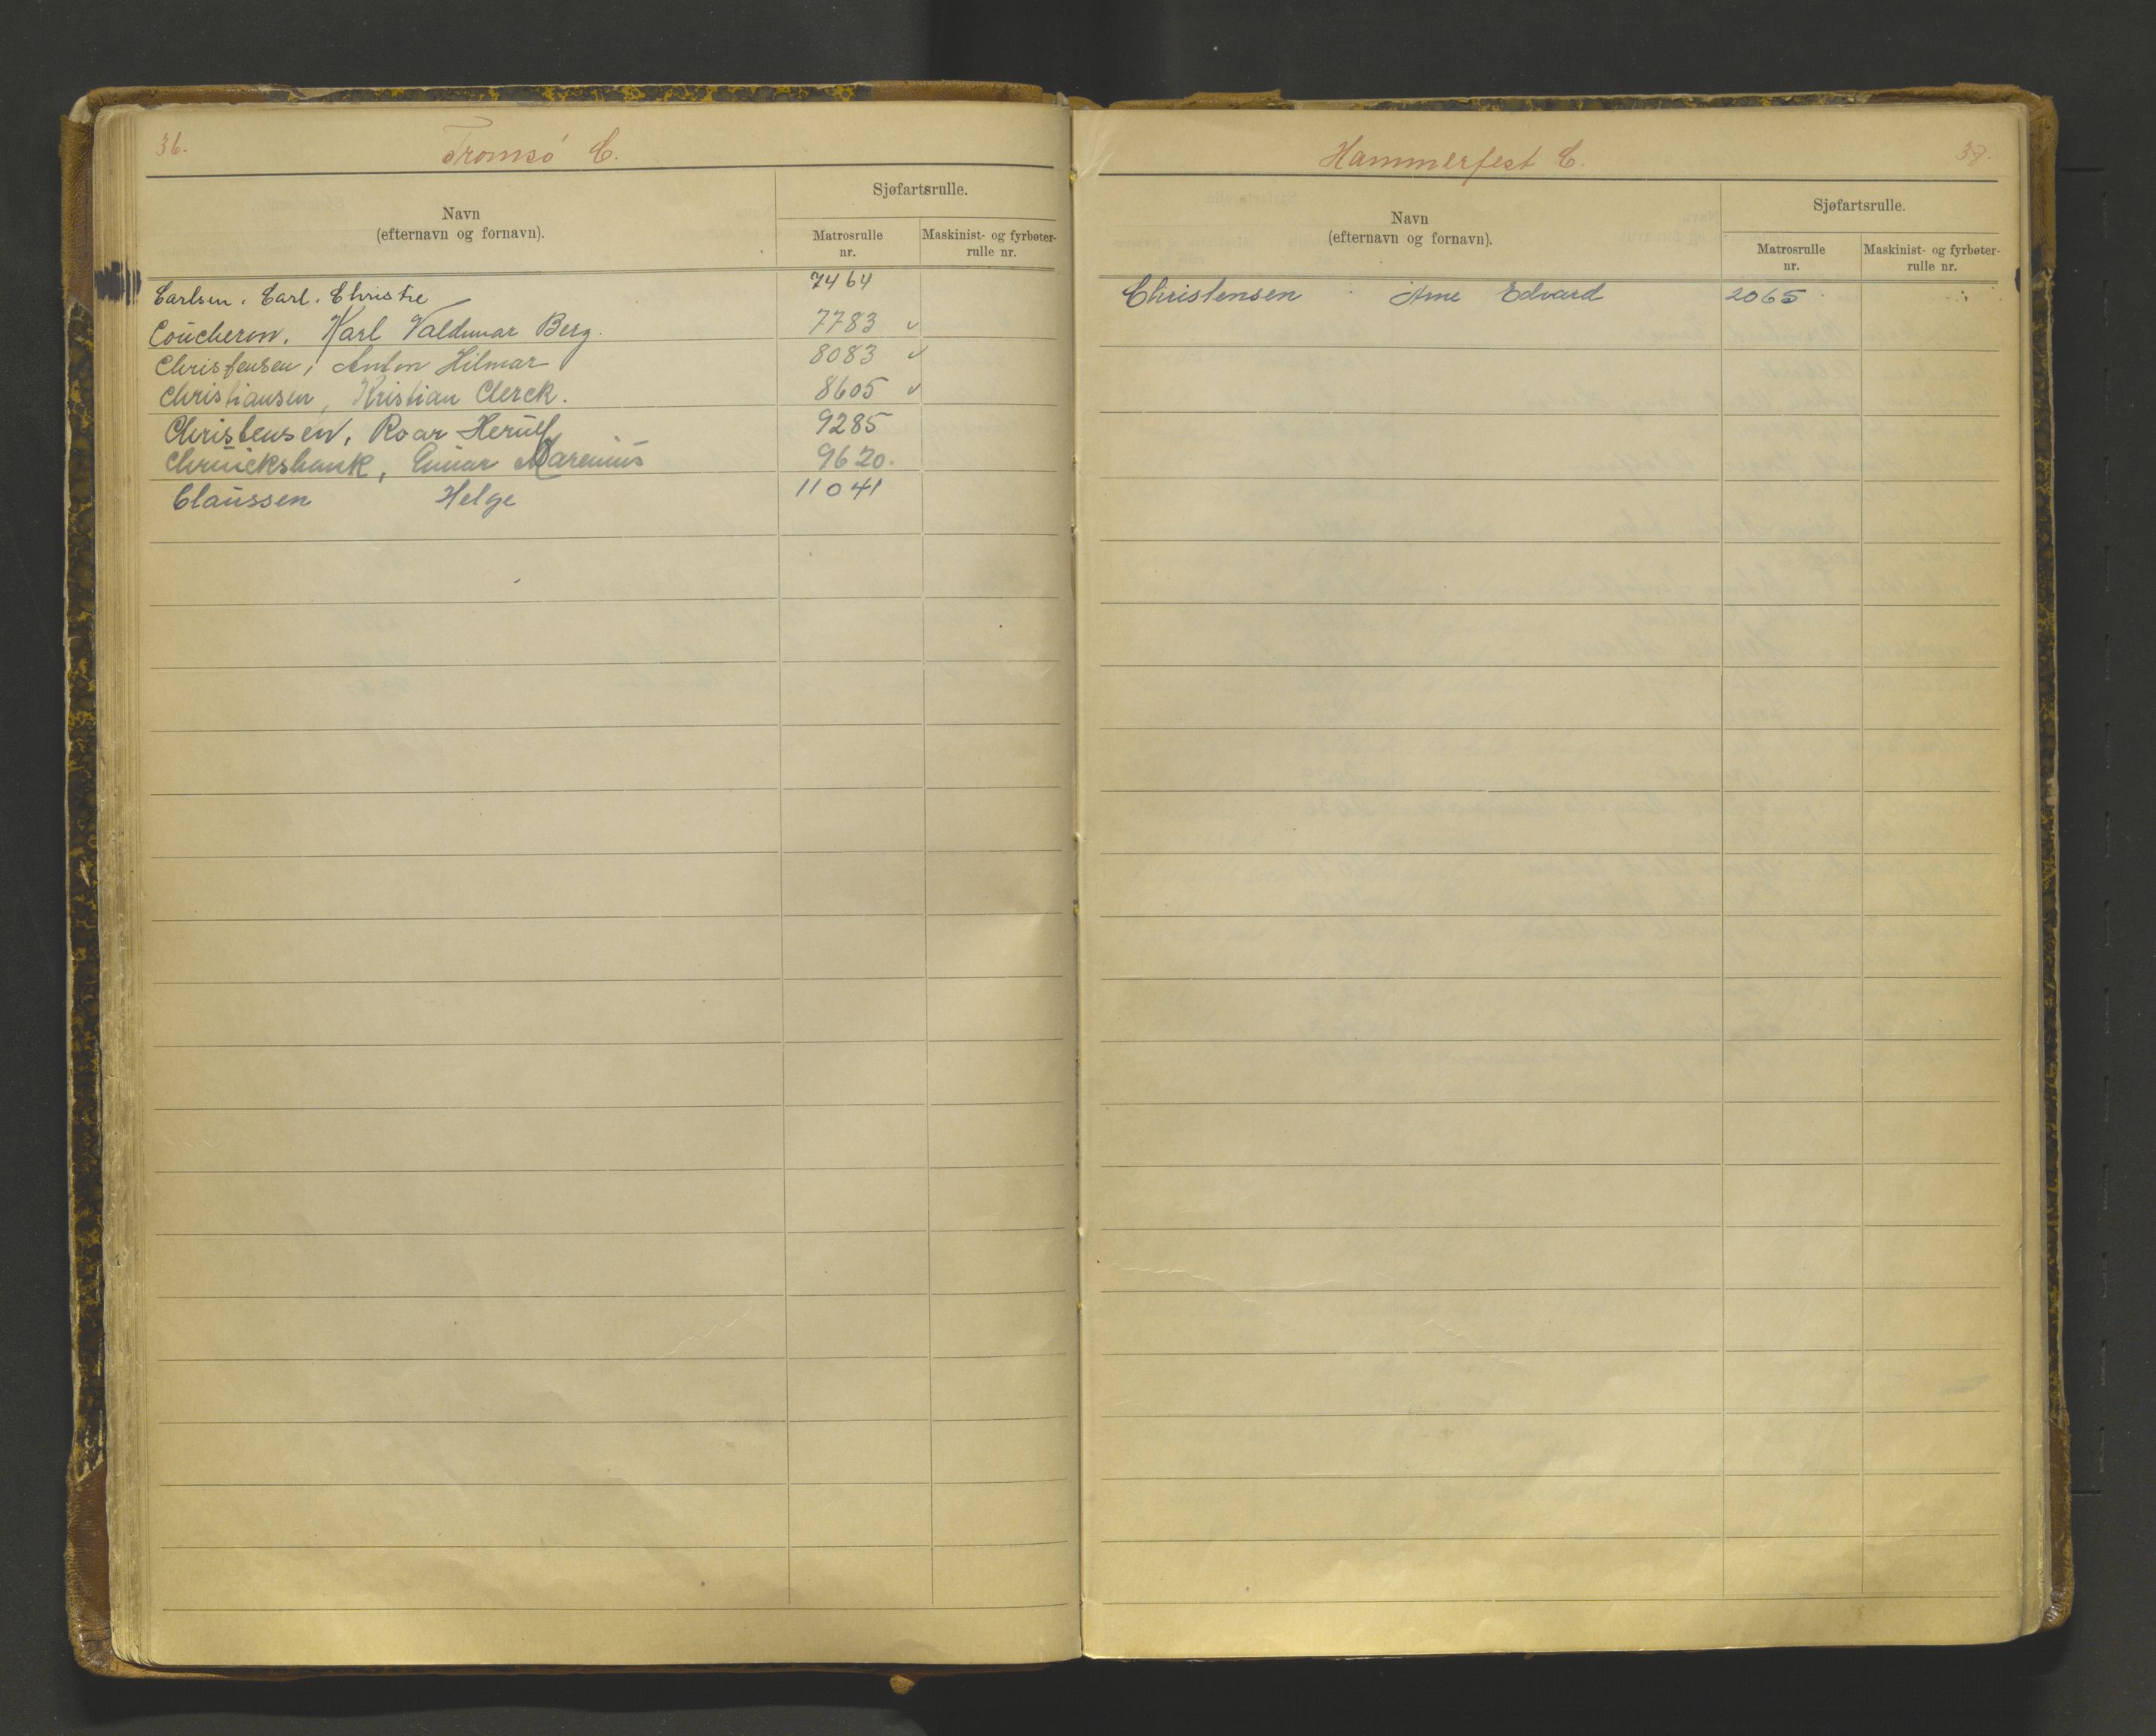 36.
Tromsø C.
Navn
(efternavn og fornavn).
Sjøfartsrulle.
Matrosrulle
nr.
Maskinist- og fyrbøter-
rulle nr.
Carlsen. Carl. Christie 7464
Coucheron, Karl Valdemar Berg. 7783 ✓
Christensen, Anton Hilmar 8083 ✓
Christiansen, Kristian Clerck. 8605 ✓
Christensen, Roar Herulf 9285
Chruickshank, Einar Marenius 9620.
Claussen Helge 11041
Hammerfest C.
37.
Navn
(efternavn og fornavn).
Sjøfartsrulle.
Matrosrulle
nr.
Maskinist- og fyrbøter-
rulle nr.
Christensen Arne Edvard 2065